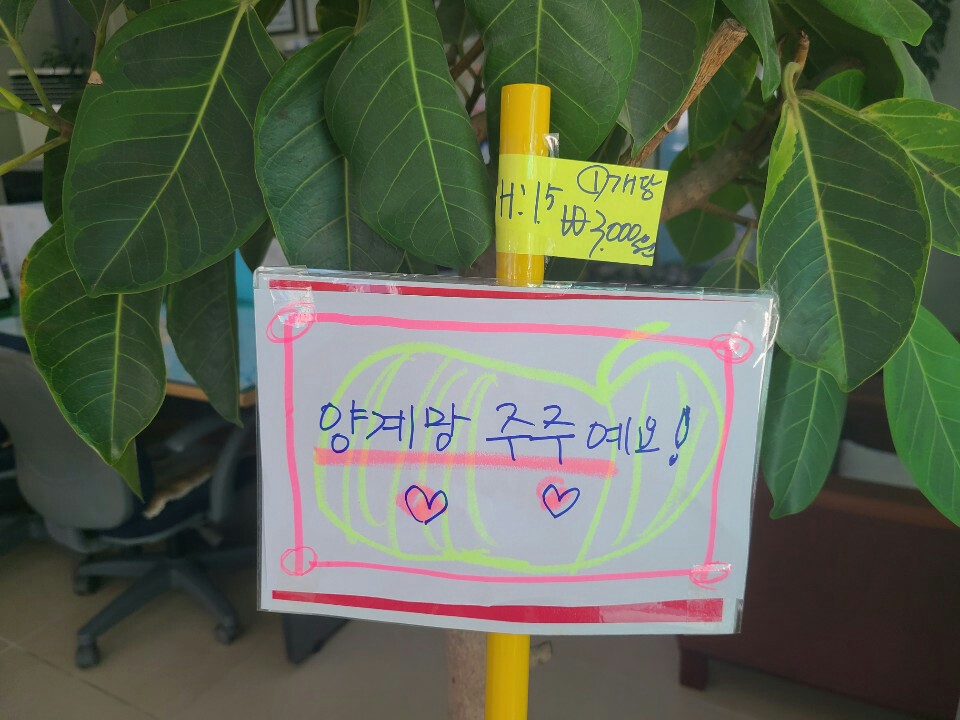 H: 1.5 ①개당
₩3,000원
양계망 주주예요!